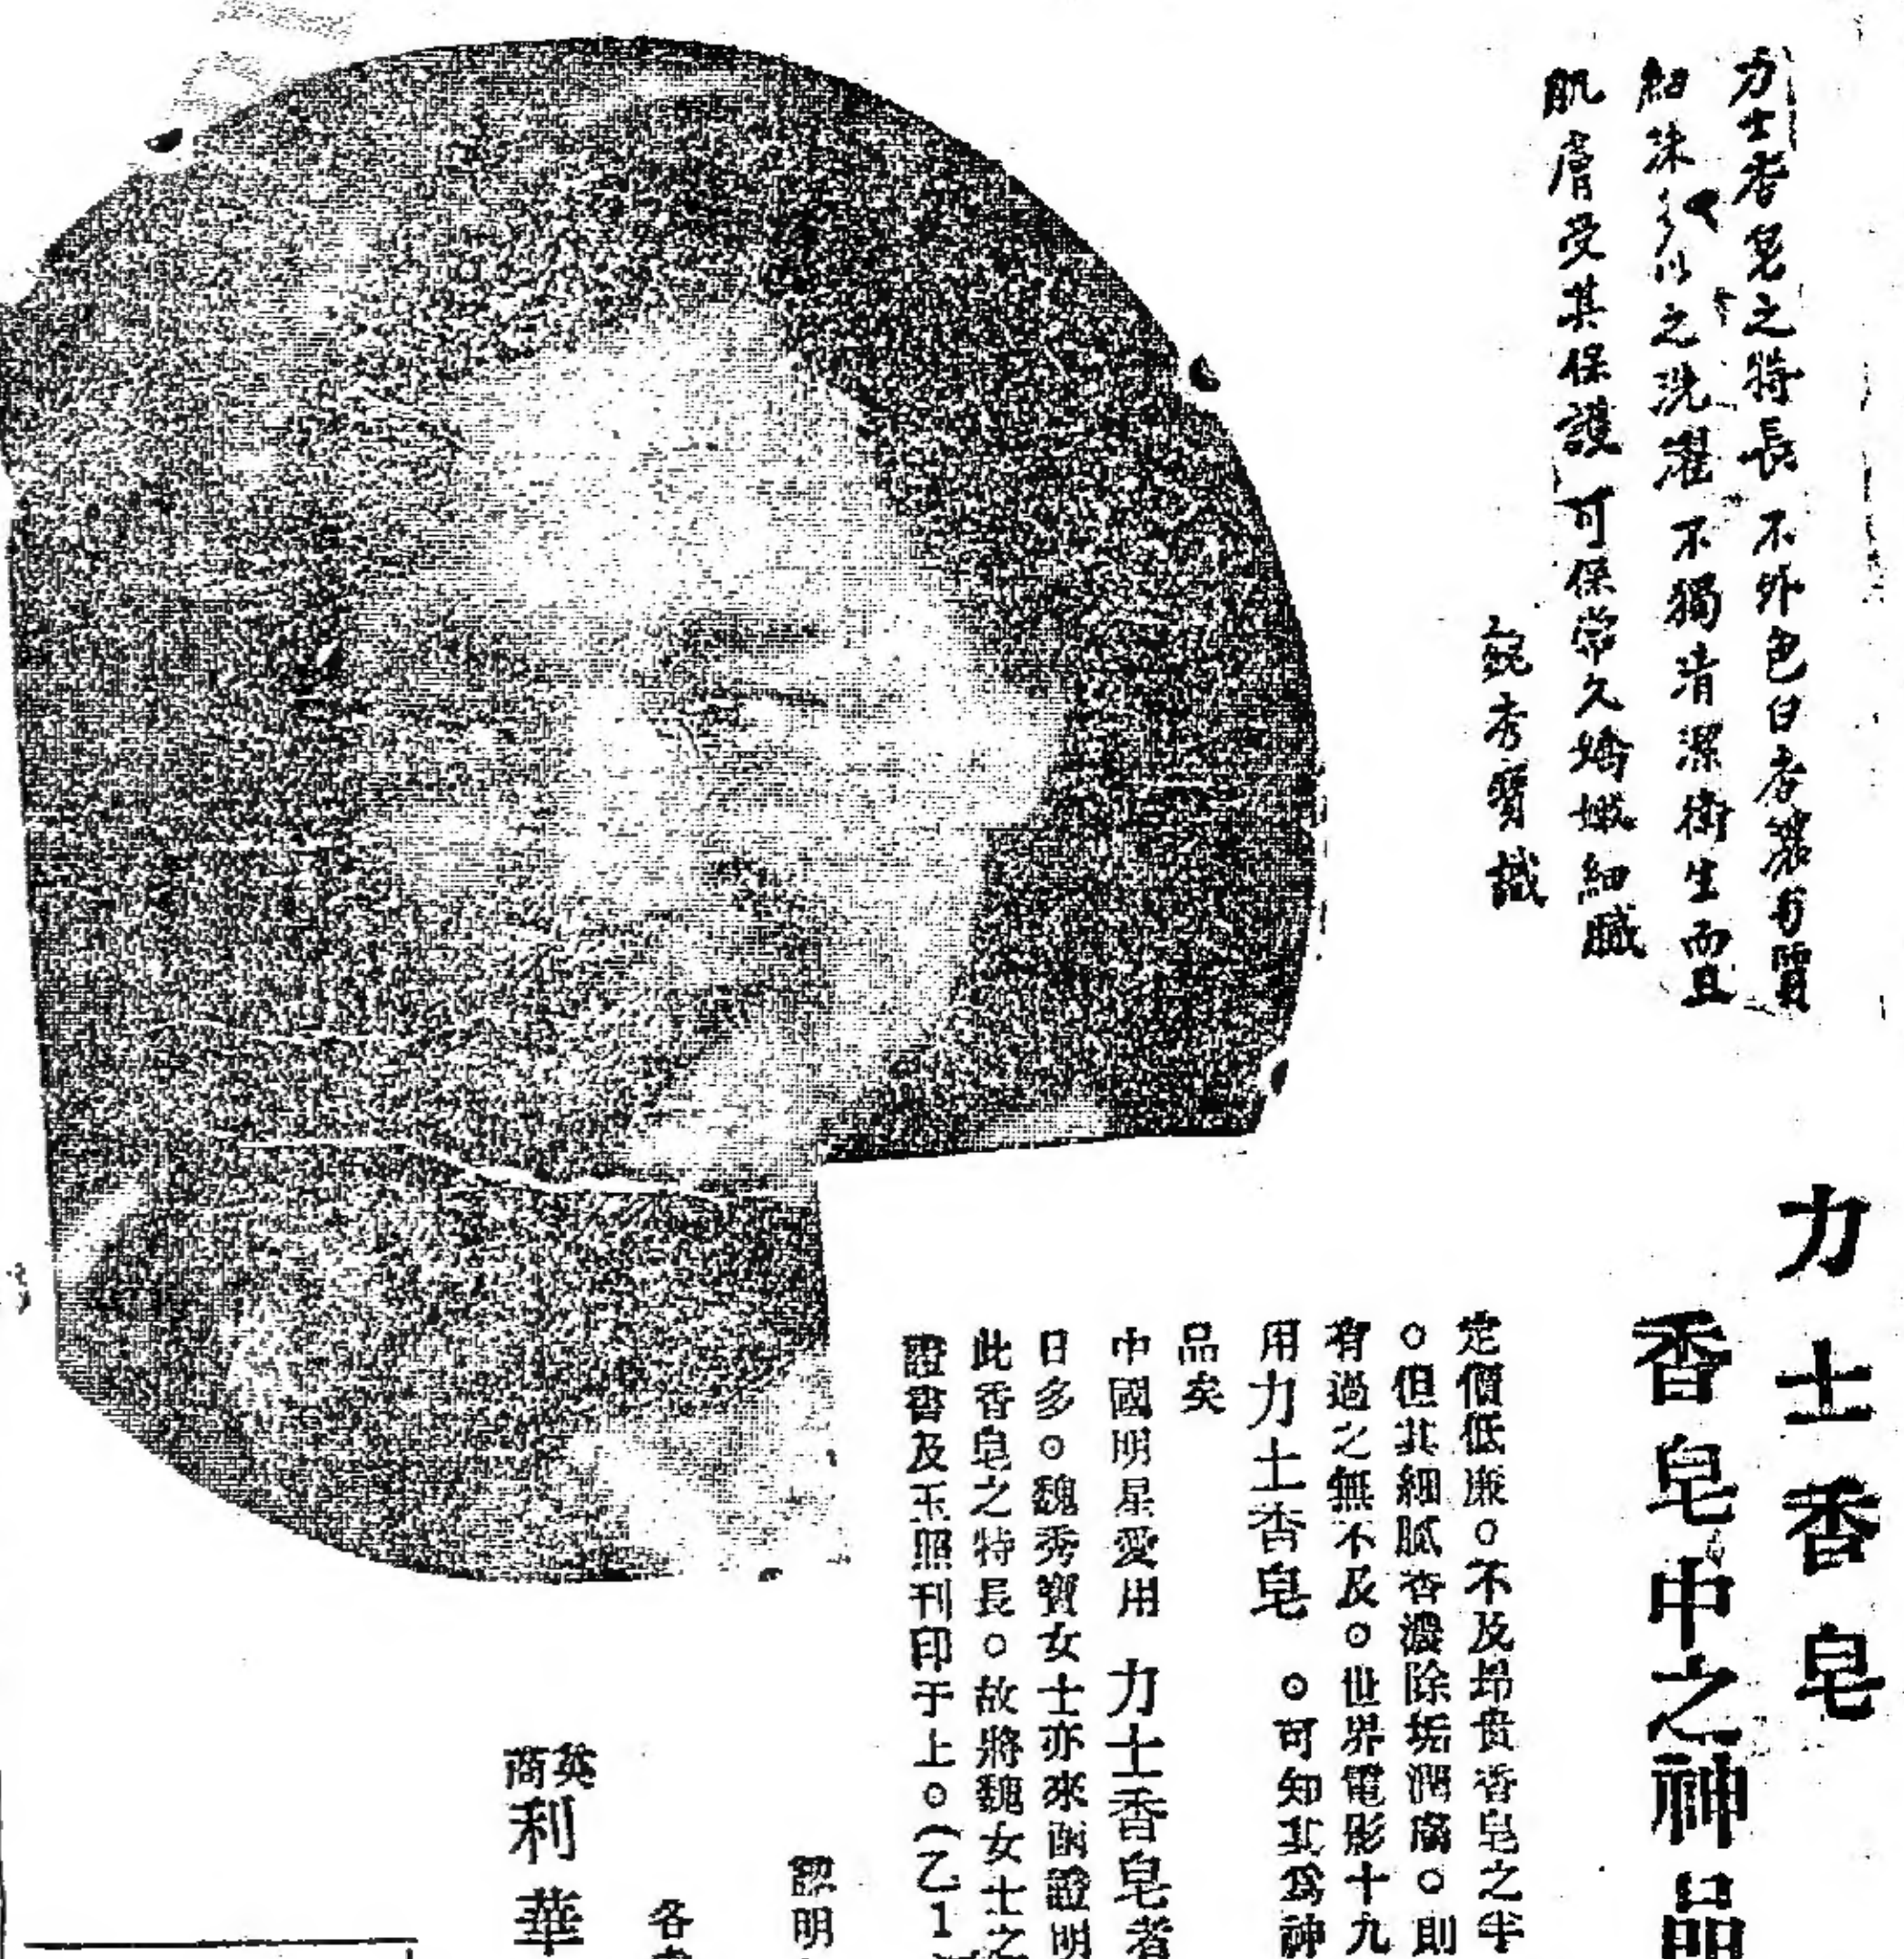 力士香皂之特長不外色白香濃與質
細沫多以之洗濯不獨清潔衛生而且
肌膚受其保護可保常久嬌嫩細膩
魏秀寶識
力士香皂
香皂中之神品
定價低廉。不及昂貴香皂之半
。但其細膩香濃除垢潤膚。則
有過之無不及。世界電影十九
用力士香皂。可知其為神
品矣
中國明星愛用力士香皂者
日多。魏秀寶女士亦來函證明
此香皂之特長。故將魏女士之
證書及玉照刊印于上。(乙1
認明
各
英商利華